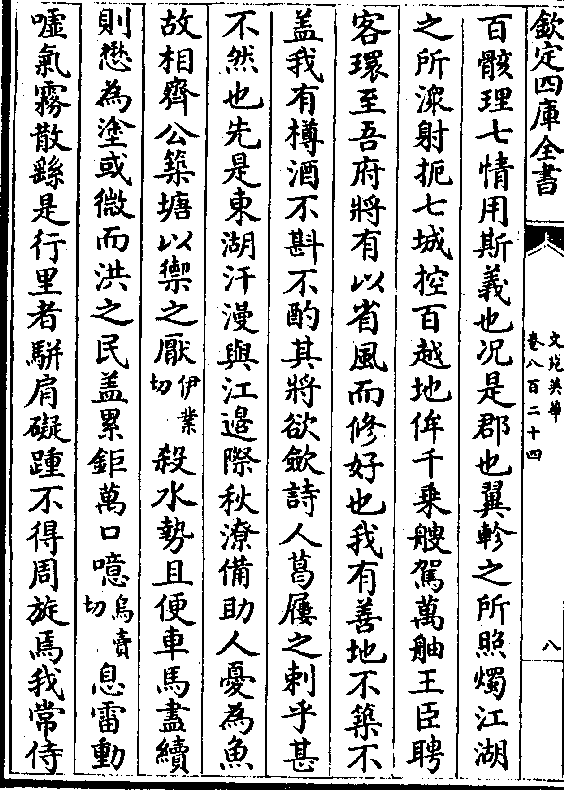 欽定四庫全書
文苑英華
卷八百二十四
八
百骸理七情用斯義也況是郡也翼軫之所照燭江湖
之所潨射扼七城控百越地侔千乗艘駕萬舳王臣聘
客環至吾府將有以省風而修好也我有善地不築不
蓋我有樽酒不斟不酌其將欲歛詩人葛屨之刺乎甚
不然也先是東湖汗漫與江邉際秋潦備助人憂為魚
故相齊公築塘以禦之厭伊業切殺水勢且便車馬盡續
則懋為塗或微而洪之民蓋累鉅萬口噫烏賣切息雷動
嘘氣霧散繇是行里者駢肩礙踵不得周旋焉我常侍